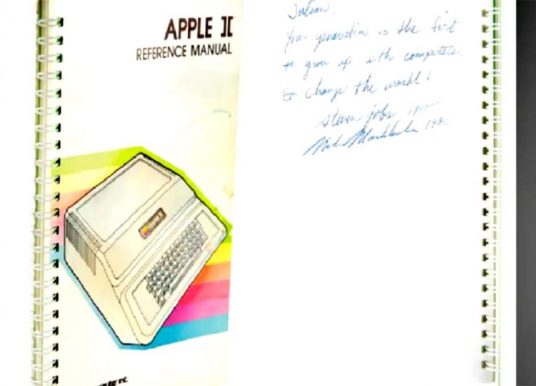 APPLE ][
REFERENCE MANUAL
Julian
Your generation is the first
to grow up with computers
to change the world!
steven jobs
1980